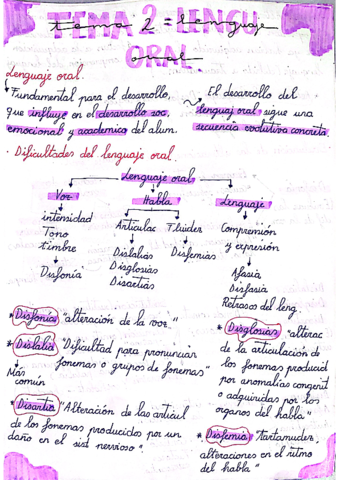 TEMA 2 = LENGUAJE
ORAL.
Lenguaje oral.
Fundamental para el desarrollo,
que influye en el desarrollo soc,
emocional y academico del alum.
El desarrollo del
lenguaj oral sigue una
secuencia evolutiva concreta
· Dificultades del lenguaje oral.
Lenguaje oral
Voz
Habla
Lenguaje
intensidad
Tono
timbre
Disfonía
Articulac
Fluidez
Dislalias
Disglosias
Disartrias
Disfemias
Compremión
y expresión
Afasia
Disfasia
Retrasos del leng.
* Disfonía "alteración de la voz."
* Dislalia "Dificultad para pronunciar
fonemas o grupos de fonemas"
Más
común
* Disartria "Alteración de las articul
de los fonemas producidos por un
daño en el sist nervioso".
* Disglosias "alterac
de la articulación de
los fonemas producid
por anomalías congenit
o adquiridas por los
organos del habla"
* Disfemia "Tartamudez,
alteraciones en el ritmo
del habla"